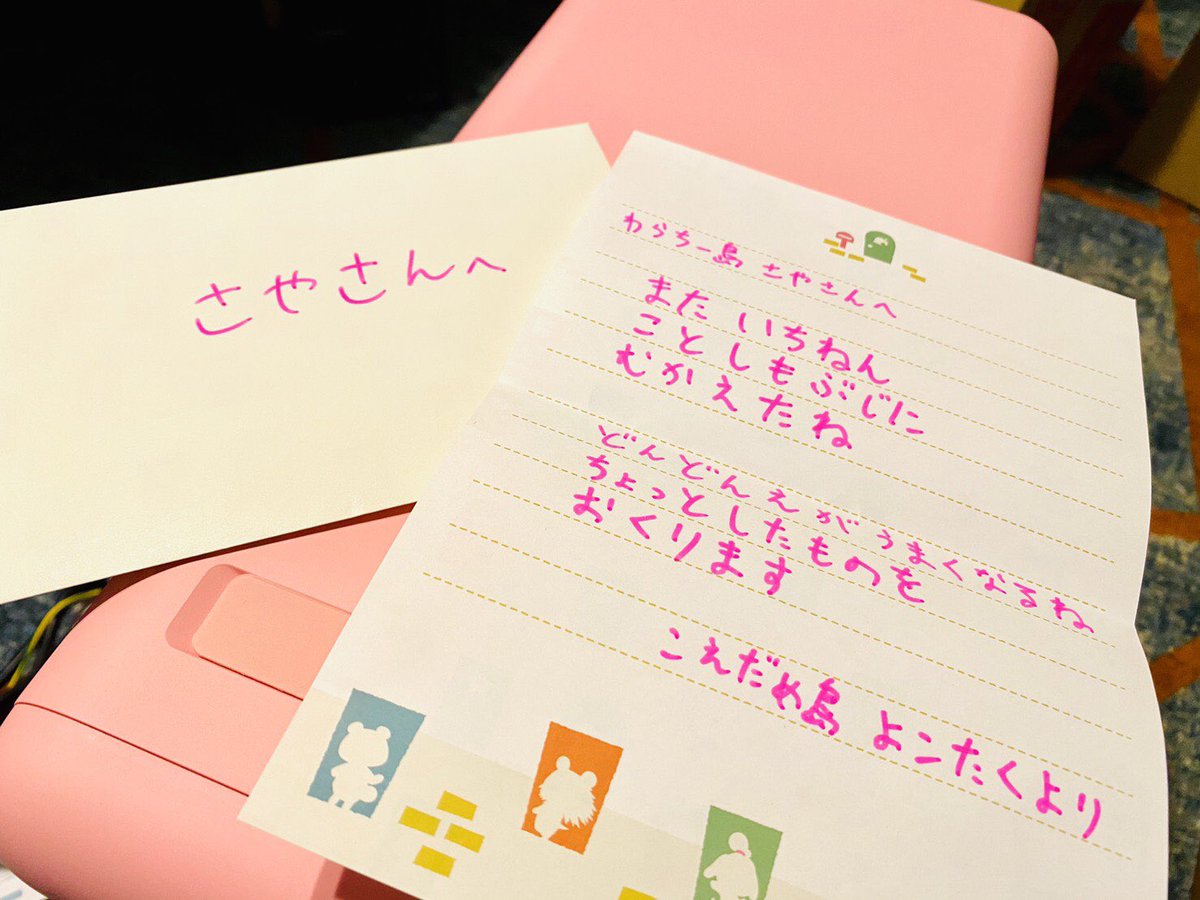 さやさんへ
わらちー島 さやさんへ
また いちねん
ことしもぶじに
むかえたね
どんどんえがうまくなるね
ちょっとしたものを
おくります
こえだめ島 よこたくより